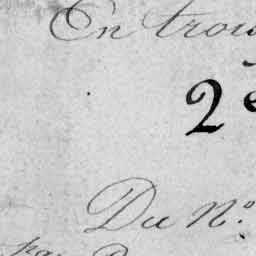 En trou
2e
Du N.º